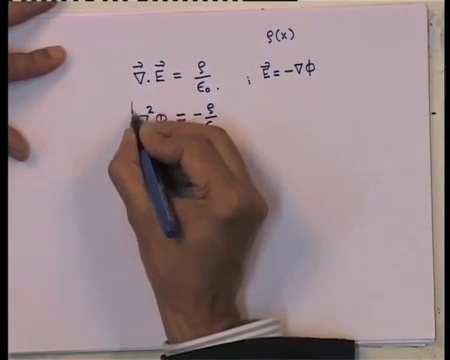 ρ(x)
∇⃗.E⃗ = ρ/ε₀. ; E⃗ = -∇Φ
∇²Φ = -ρ/